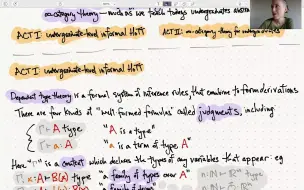 ∞-category theory — much as we teach todays undergraduates abstra
ACT I: undergraduate-level informal HoTT
ACT II: ∞-category theory for undergraduates
ACT I: undergraduate-level informal HoTT
Dependent type theory is a formal system of inference rules that combine to form derivations
There are four kinds of "well-formed formulas" called judgments, including:
Γ ⊢ A type "A is a type"
Γ ⊢ a : A "a is a term of type A"
Here "Γ" is a context which declares the types of any variables that appear eg
Γ, x:A ⊢ B(x) type "a family of types over A"